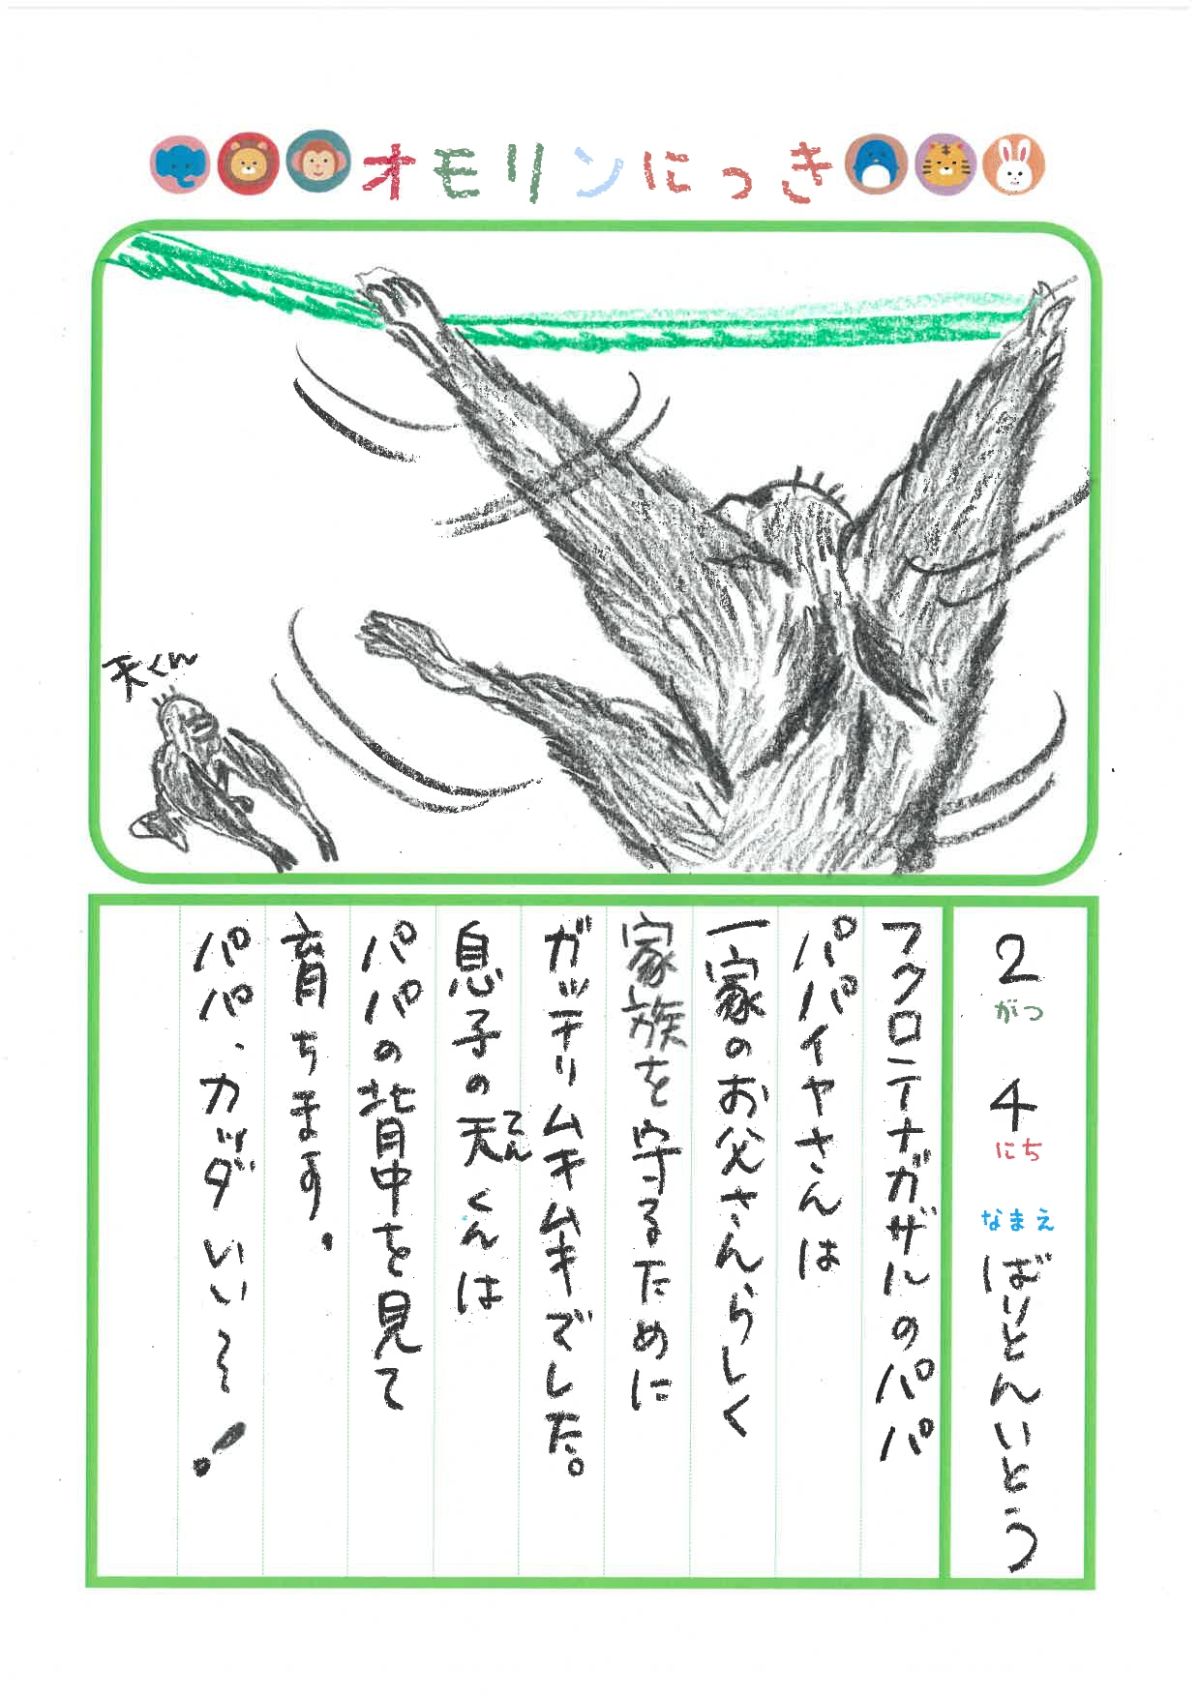 オモリンにっき
天くん
2がつ 4にち なまえ ばりとんいとう
フクロテナガザルのパパ
パパイヤさんは
一家のお父さんらしく
家族を守るために
ガッチリムキムキでした。
息子の天くんは
てん
パパの背中を見て
育ちます。
パパ、カッコいい〜!